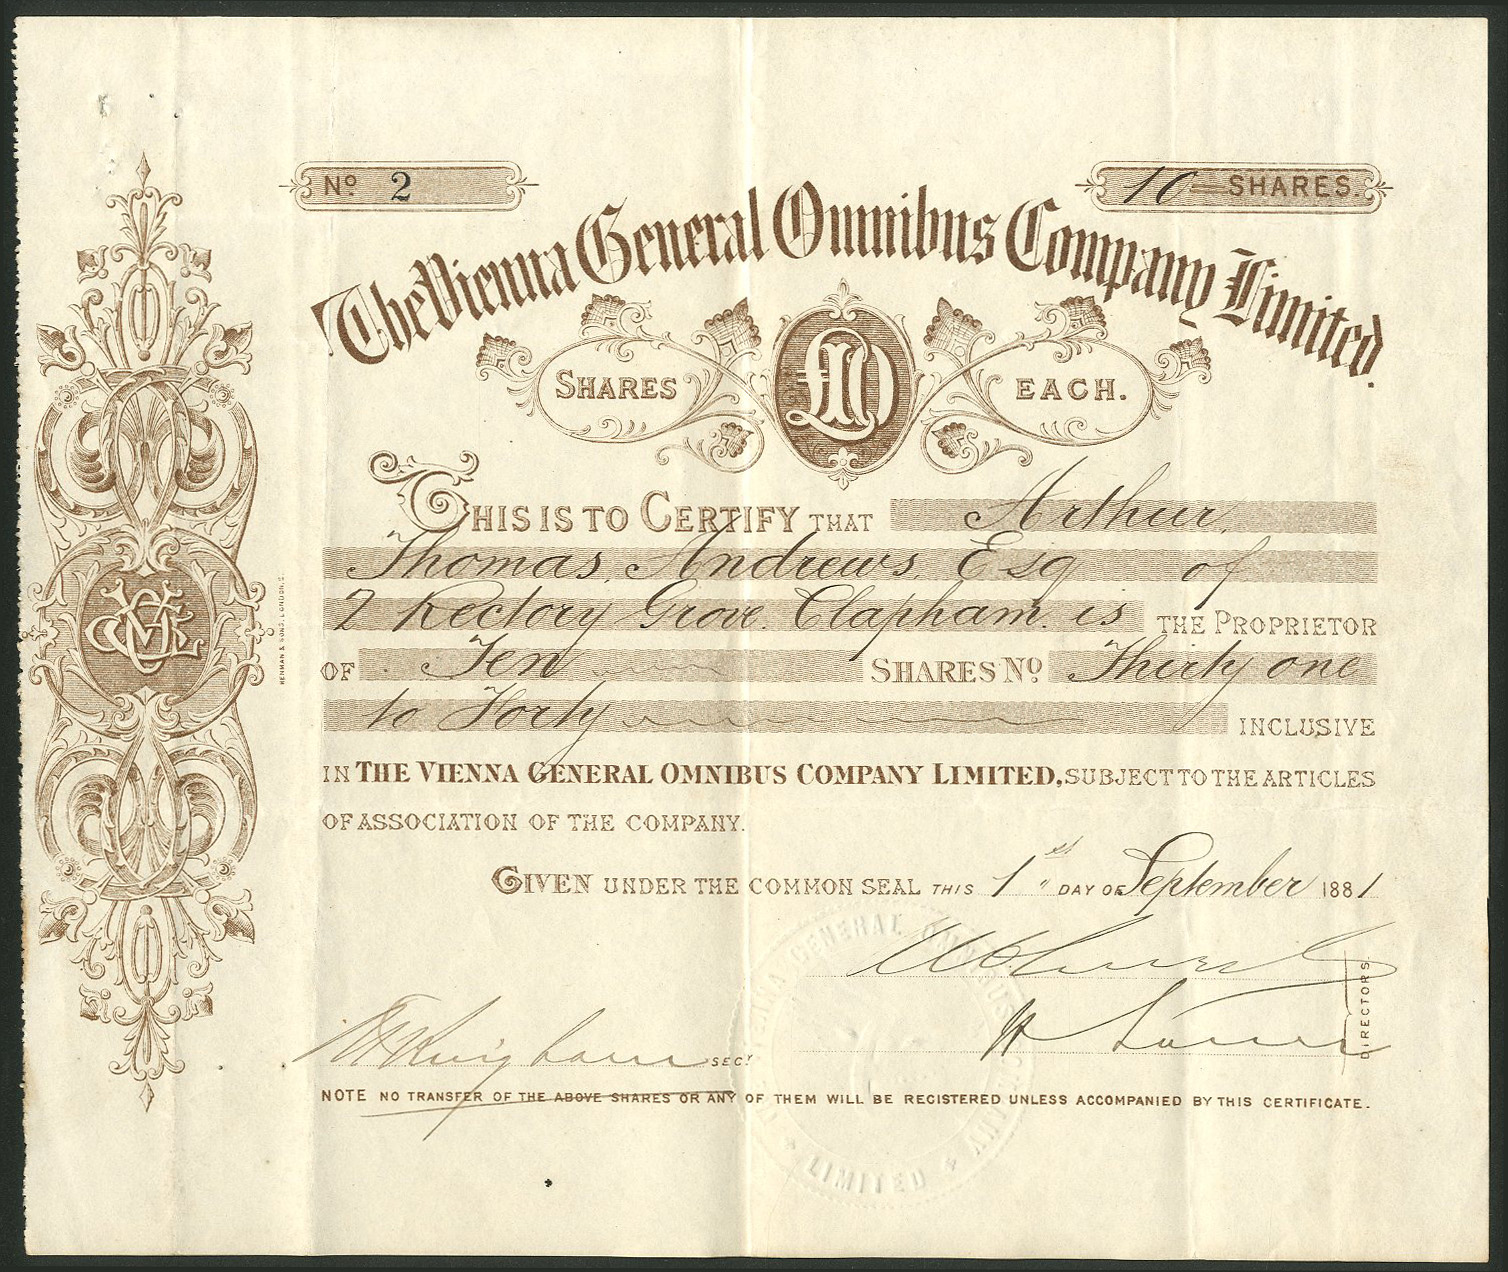 No 2
10 SHARES.
The Vienna General Omnibus Company Limited.
SHARES £10 EACH.
THIS IS TO CERTIFY THAT Arthur
Thomas Andrews Esq of
7 Rectory Grove. Clapham. is THE PROPRIETOR
OF Ten SHARES No Thirty one
to Forty INCLUSIVE
IN THE VIENNA GENERAL OMNIBUS COMPANY LIMITED, SUBJECT TO THE ARTICLES
OF ASSOCIATION OF THE COMPANY.
GIVEN UNDER THE COMMON SEAL THIS 1st DAY OF September 1881
DIRECTORS
SECY
NOTE NO TRANSFER OF THE ABOVE SHARES OR ANY OF THEM WILL BE REGISTERED UNLESS ACCOMPANIED BY THIS CERTIFICATE.
THE VIENNA GENERAL OMNIBUS COMPANY LIMITED